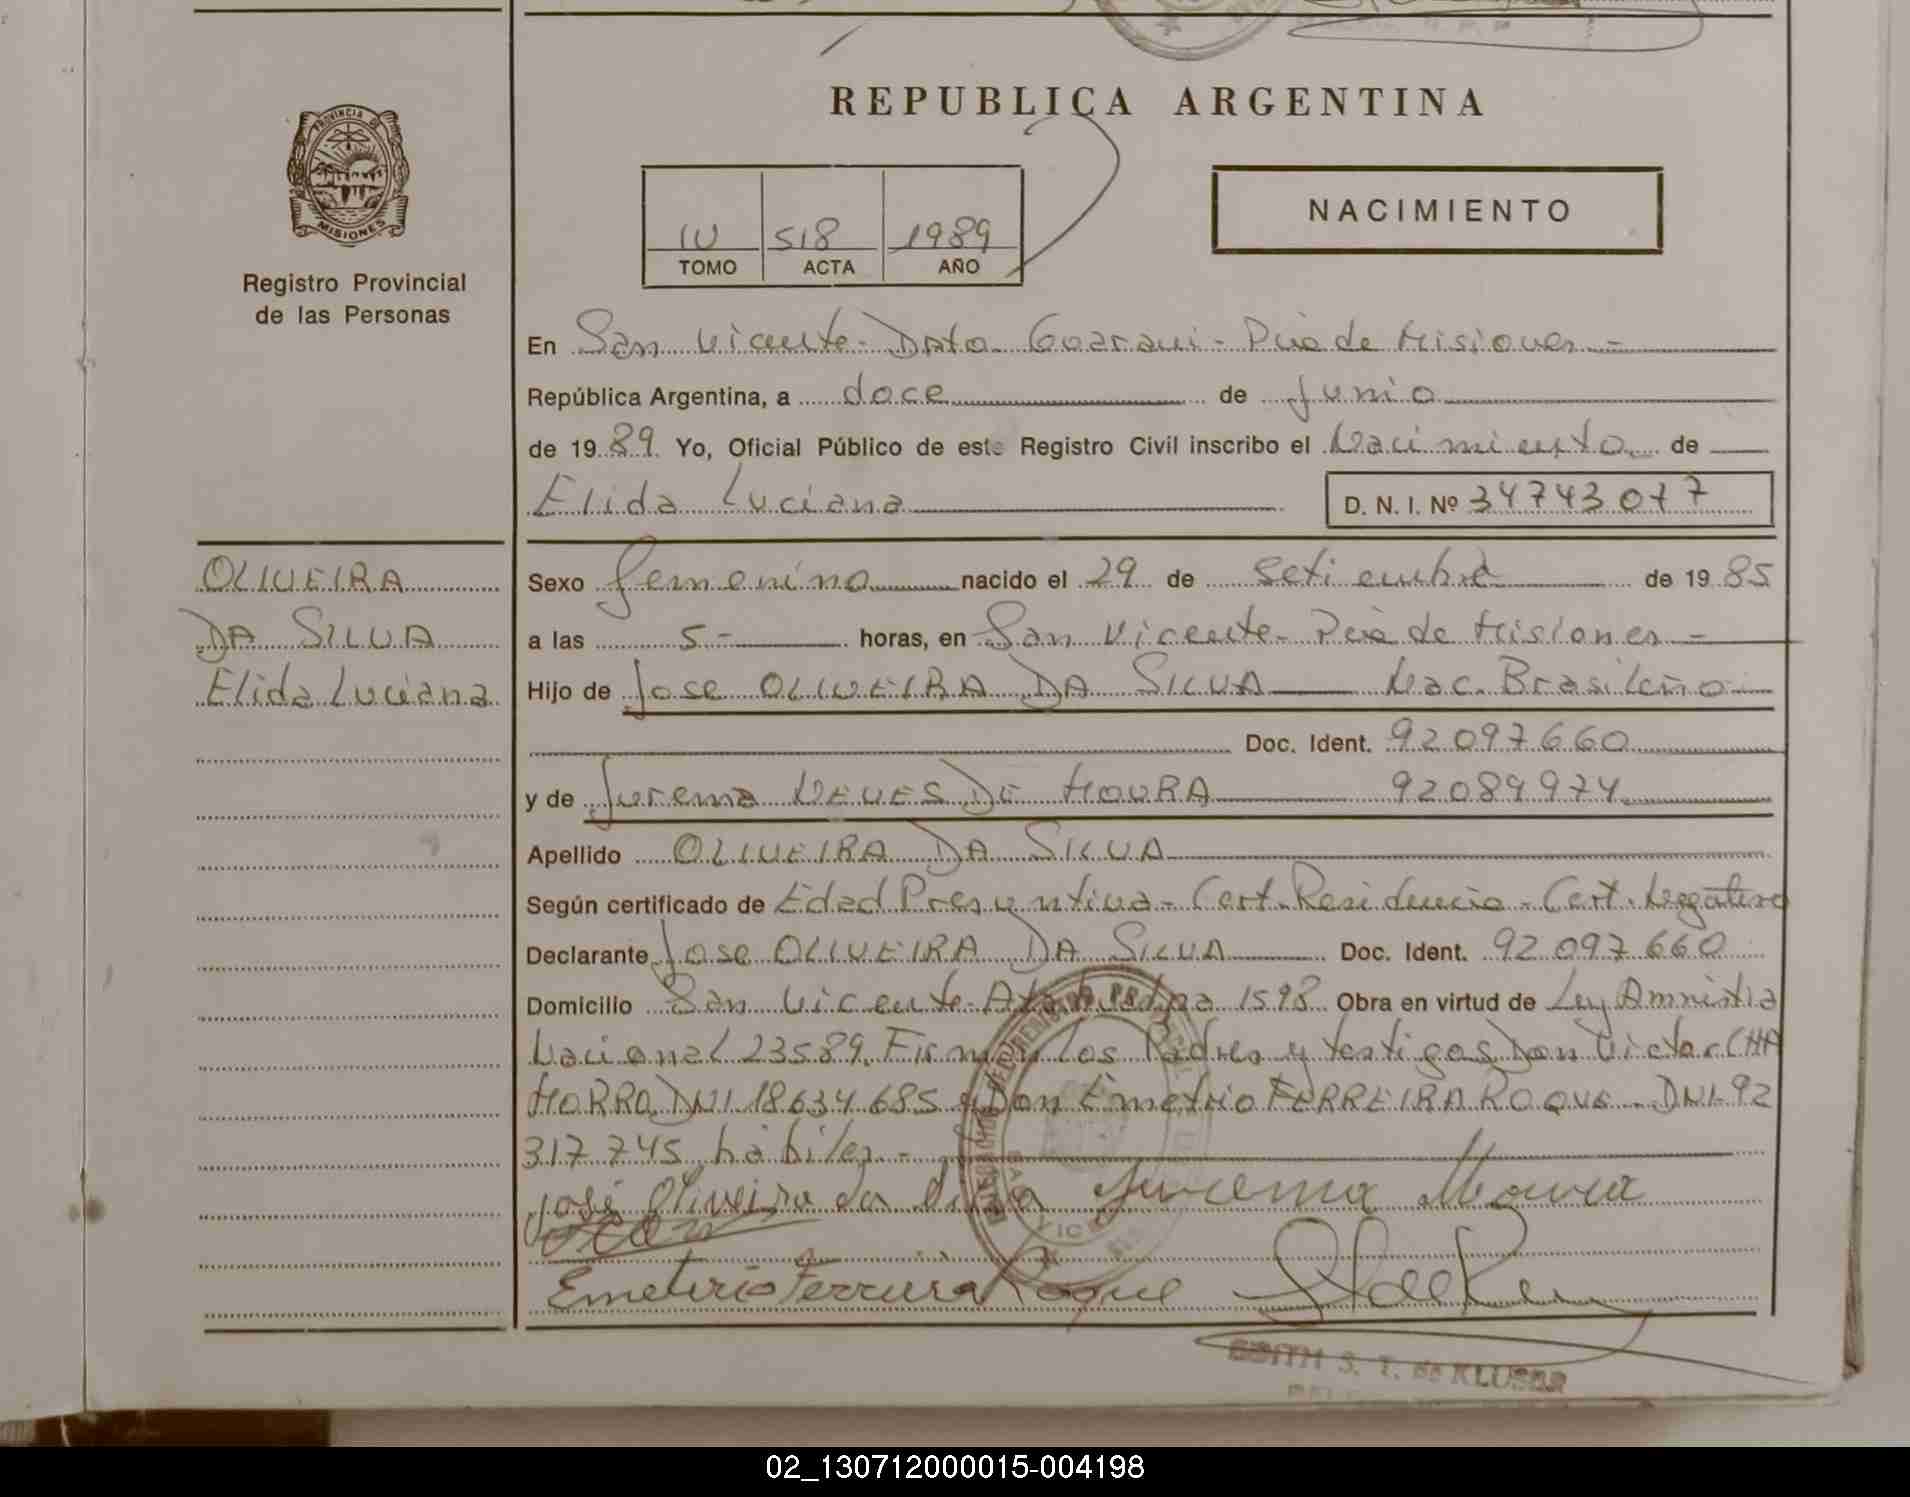 REPUBLICA ARGENTINA
PROVINCIA DE
MISIONES
Registro Provincial
de las Personas
IV 518 1989
TOMO ACTA AÑO
NACIMIENTO
En San Vicente - Dpto Guarani - Pcia de Misiones -
República Argentina, a doce de junio
de 1989. Yo, Oficial Público de este Registro Civil inscribo el Nacimiento de
Elida Luciana D. N. I. Nº 34743077
OLIVEIRA
DA SILVA
Elida Luciana
Sexo femenino nacido el 29 de Setiembre de 1985
a las 5 - horas, en San Vicente - Pcia de Misiones -
Hijo de Jose OLIVEIRA DA SILVA Nac. Brasileño
Doc. Ident. 92097660
y de Jurema NEVES DE MOURA 92089974
Apellido OLIVEIRA DA SILVA
Según certificado de Edad Presuntiva - Cert. Residencia - Cert. Negativo
Declarante Jose OLIVEIRA DA SILVA Doc. Ident. 92 097 660
Domicilio San Vicente - 1598 Obra en virtud de Ley Amnistia
Nacional 23589. Firman los Padres y testigos Don Victor CHA
MORRO DNI 18634685 y Don Emetrio FERREIRA ROQUE - DNI 92
317 745, hábiles -
José Oliveira da Silva Jurema Moura
Emeterio Ferreira Roque
EDITH S. T. de KLUSER
02_130712000015-004198